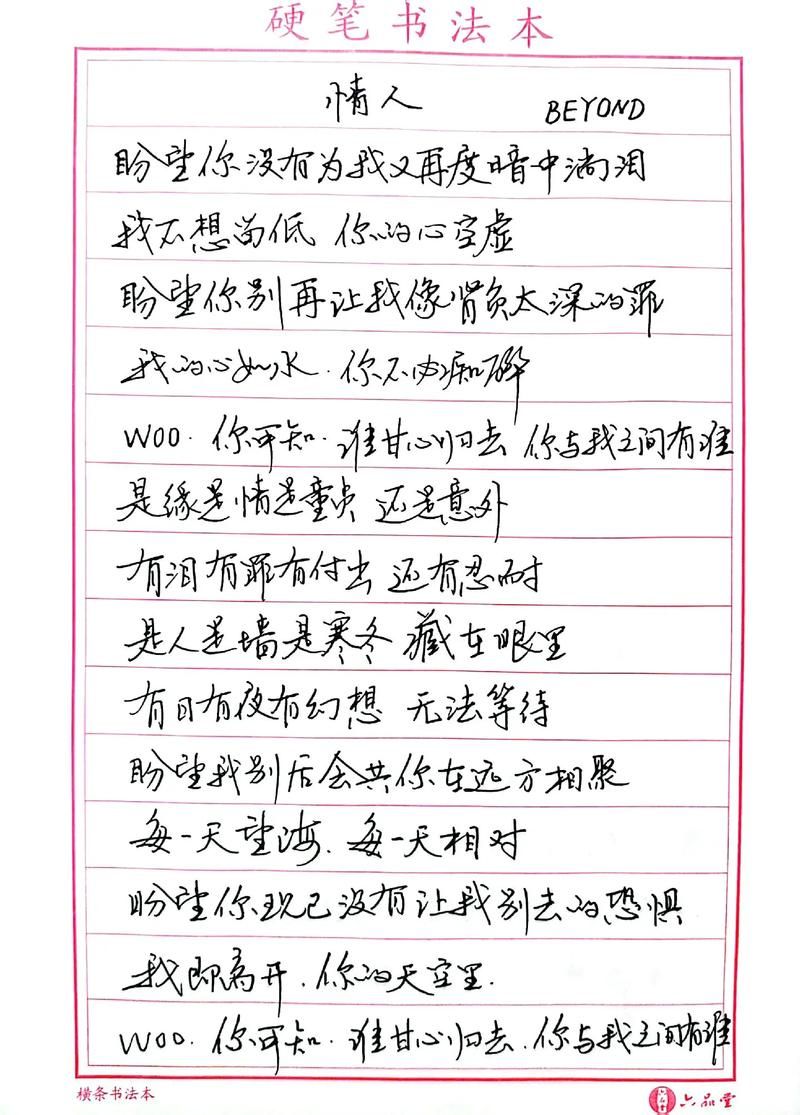 硬笔书法本
情人 BEYOND
盼望你没有为我又再度暗中淌泪
我不想留低 你的心空虚
盼望你别再让我像背负太深的罪
我的心如水.你不必痴醉
WOO.你可知.谁甘心归去 你与我之间有谁
是缘是情是童贞 还是意外
有泪有罪有付出 还有忍耐
是人是墙是寒冬 藏在眼里
有日有夜有幻想 无法等待
盼望我别后会共你在远方相聚
每一天望海.每一天相对
盼望你现已没有让我别去的恐惧
我即离开.你的天空里.
WOO.你可知.谁甘心归去.你与我之间有谁
横条书法本 六品堂